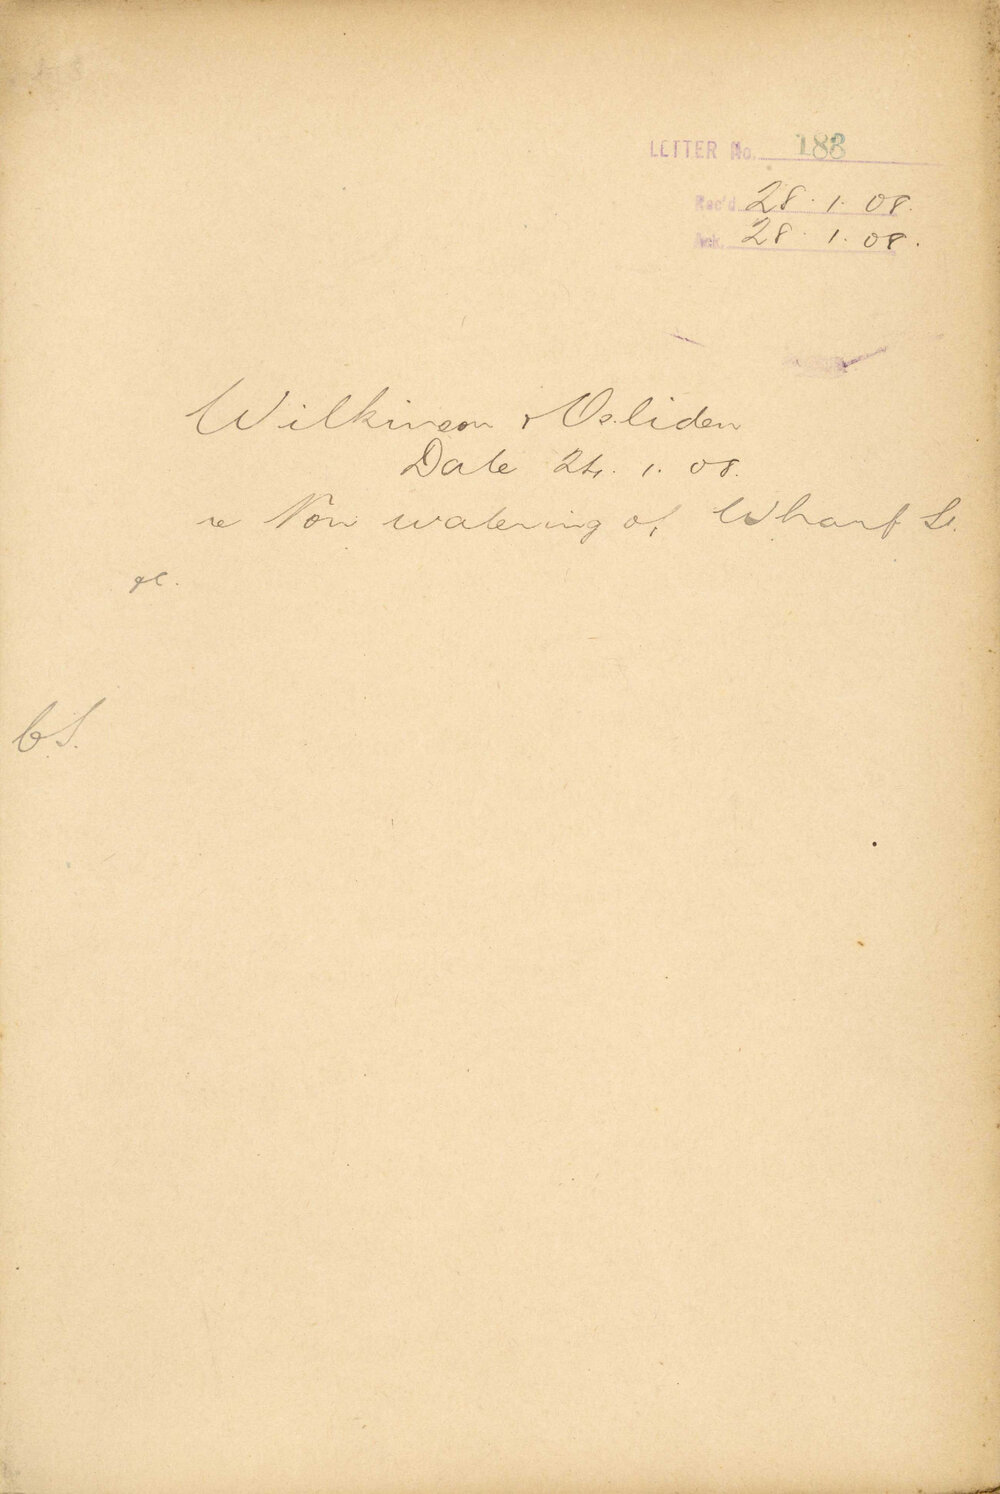 LETTER No. 183
Rec'd 28.1.08.
Ack. 28.1.08.
Wilkinson &
Date 24.1.08.
re Non watering of Wharf St.